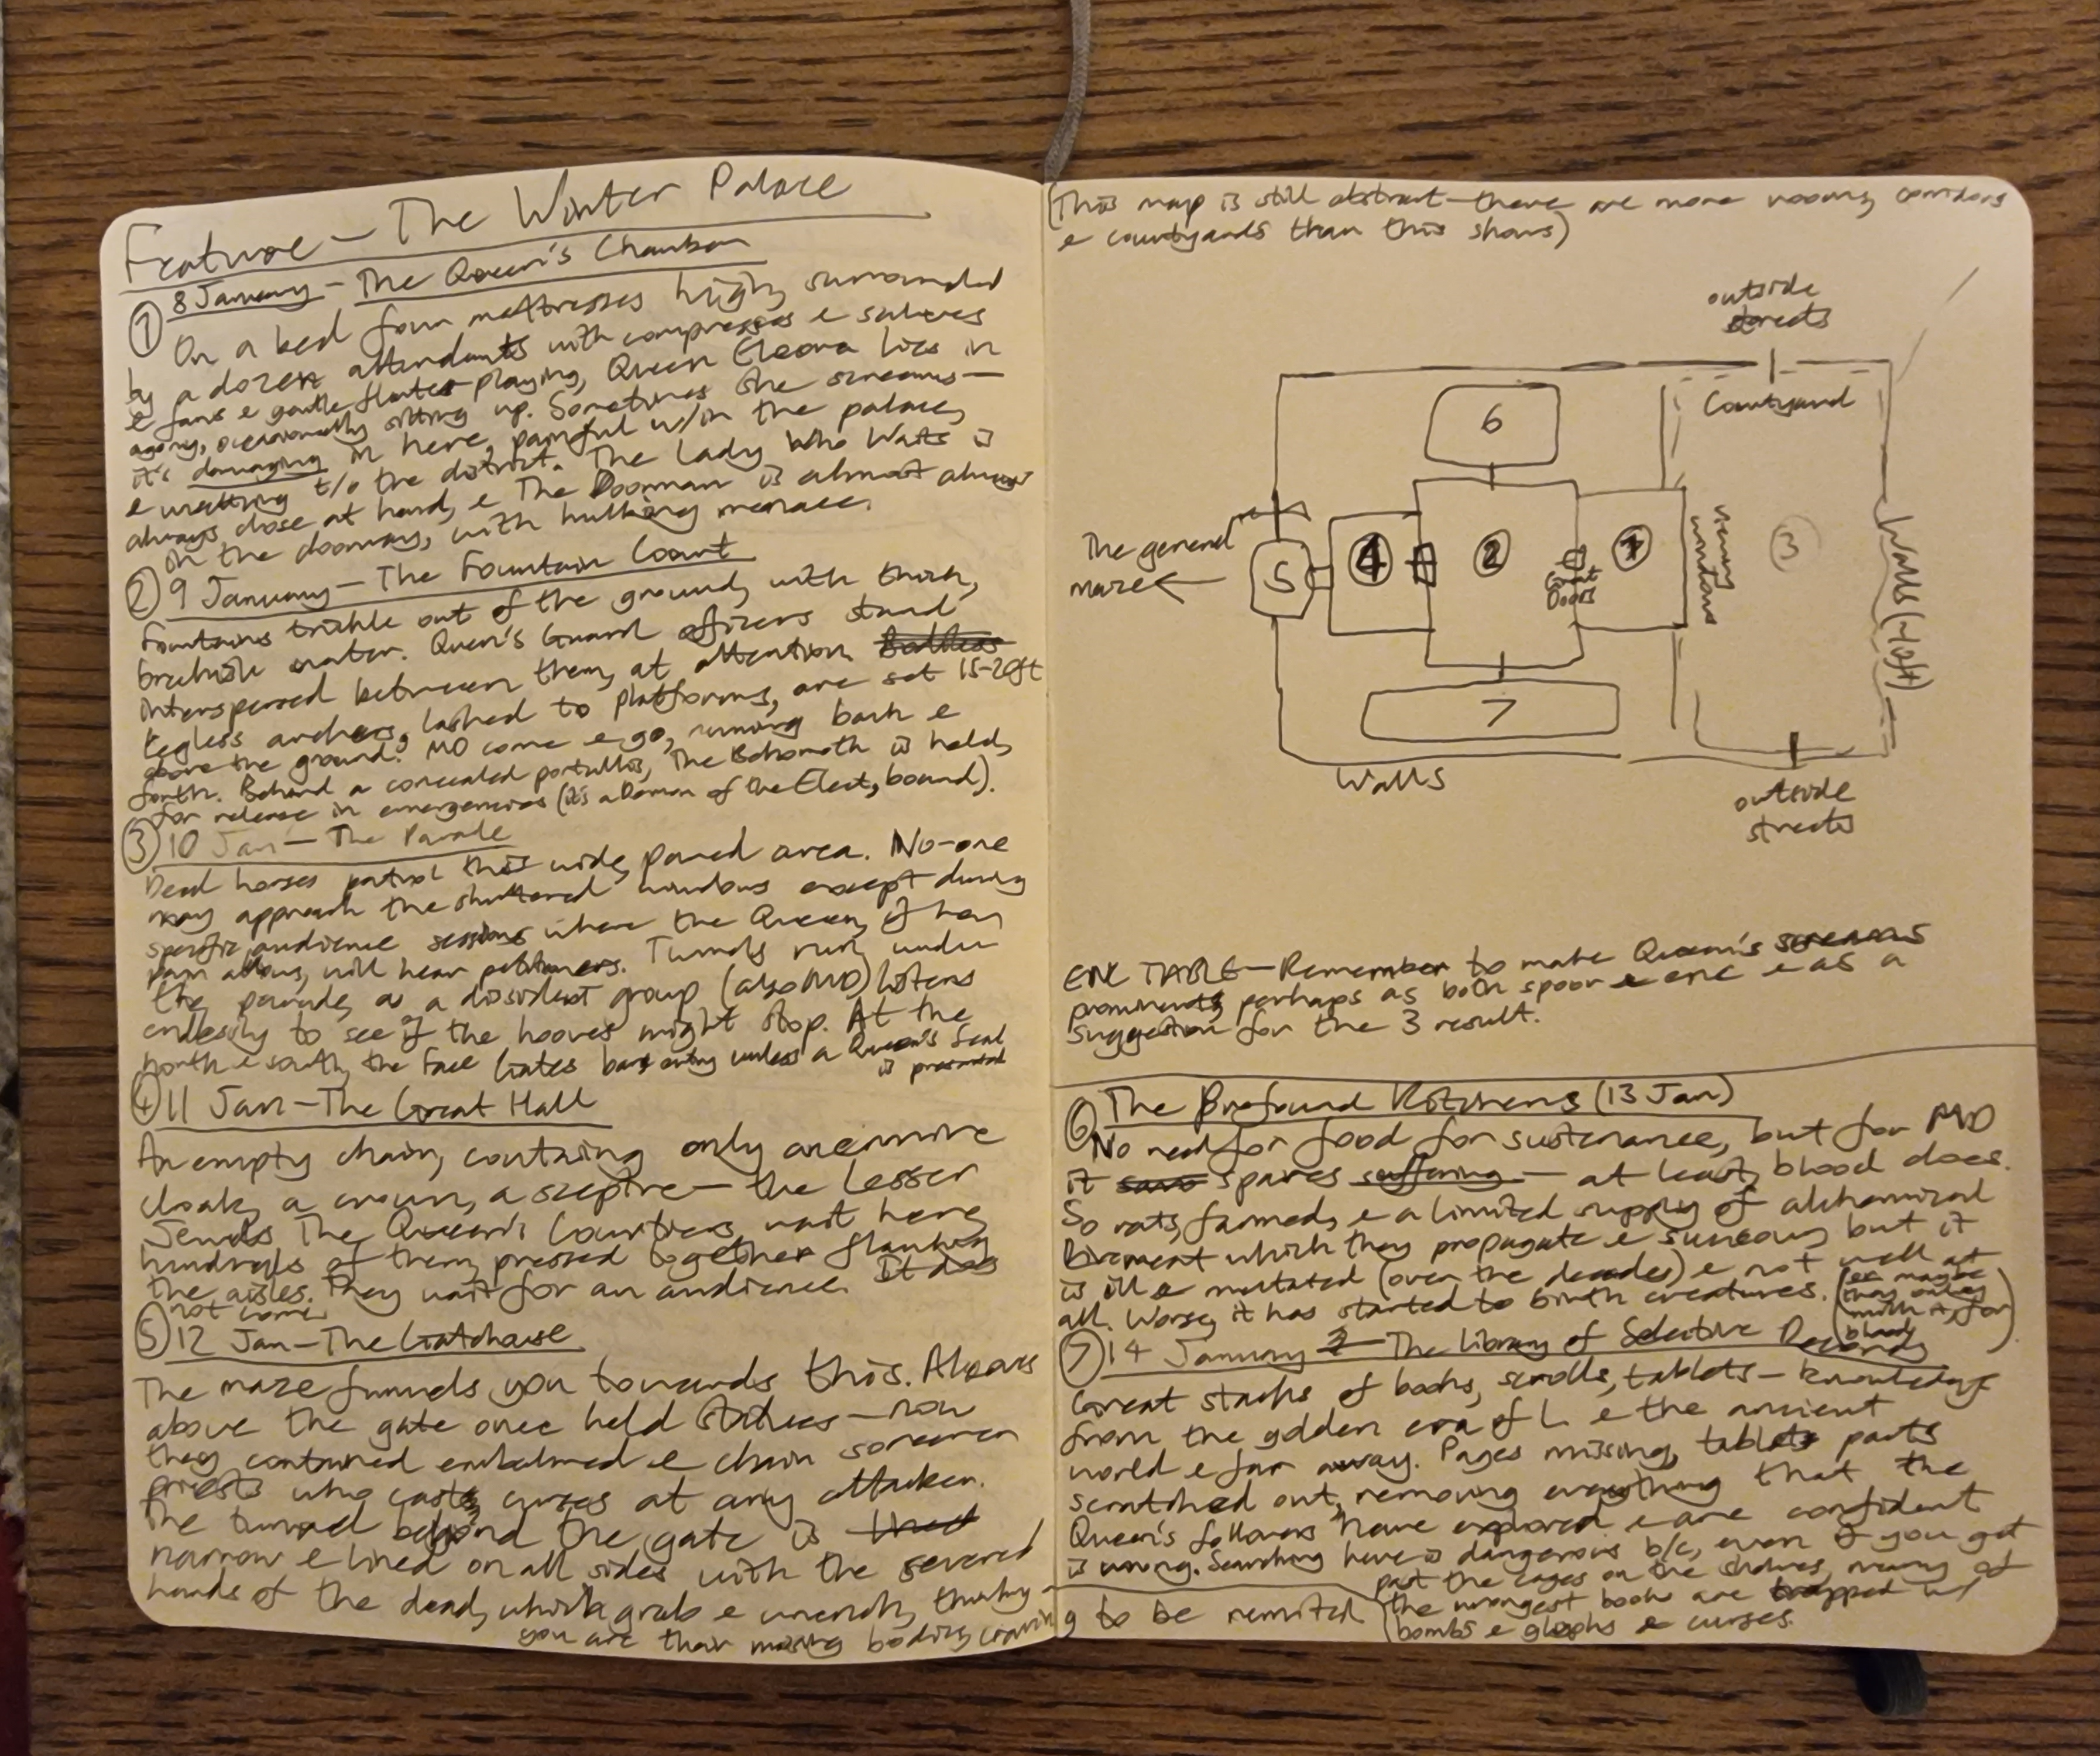 Feature – The Winter Palace
① 8 January – The Queen's Chamber
On a bed four mattresses high, surrounded
by a dozen attendants with compresses e salves
e fans e gentle flutes playing, Queen Eleora lies in
agony, occasionally sitting up. Sometimes she screams –
it's damaging in here, painful w/in the palace,
e unsettling t/o the district. The Lady Who Waits is
always close at hand, e The Doorman is almost always
in the doorway, with hulking menace.
② 9 January – The Fountain Court
Fountains trickle out of the ground, with thick,
brackish water. Queen's Guard officers stand
interspersed between them, at attention.
Legless archers, lashed to platforms, are set 15-20ft
above the ground. MO come e go, running back e
forth. Behind a concealed portcullis, The Behemoth is held,
for release in emergencies (it's a Demon of the Elect, bound).
③ 10 Jan – The Parade
Dead horses patrol this wide, paved area. No-one
may approach the shuttered windows except during
specific audience sessions where the Queen, if her
pain allows, will hear petitioners. Tunnels run under
the parade, as a dissident group (also MO) listens
endlessly to see if the hooves might stop. At the
north e south, the Face Gates bar entry unless a Queen's Seal
is presented
④ 11 Jan – The Great Hall
An empty chair, containing only an ermine
cloak, a crown, a sceptre – the Lesser
The Queen's Courtiers wait here,
hundreds of them, pressed together flanking
the aisles. They wait for an audience. It does
not come.
⑤ 12 Jan – The Gatehouse
The maze funnels you towards this. Alcoves
above the gate once held statues – now
they contained embalmed e chain sorcerer
priests who casts curses at any attacker.
The tunnel beyond the gate is lined
narrow e lined on all sides with the severed
hands of the dead, which grab e wrench, thinking
you are their missing bodies, craving
(This map is still abstract – there are more rooms, corridors
e courtyards than this shows)
outside
streets
Courtyard
6
The general
maze ←
5
4
2
Great
Doors
1
viewing
windows
3
Walls (40ft)
7
Walls
outside
streets
ENC TABLE – Remember to make Queen's screams
prominent, perhaps as both spoor e enc e as a
suggestion for the 3 result.
⑥ The Profound Kitchens (13 Jan)
No need for food for sustenance, but for MO
it spares suffering – at least, blood does.
So rats, farmed, e a limited supply of alchemical
which they propagate e but it
is ill e mutated (over the decades) e not well at
all. Worse, it has started to birth creatures. (or maybe
they only
milk it, for
blood)
⑦ 14 January – The Library of Selective Records
Great stacks of books, scrolls, tablets – knowledge
from the golden era of L e the ancient
world e far away. Pages missing, tablets parts
scratched out, removing everything that the
Queen's followers have explored e are confident
is wrong. Searching here is dangerous b/c, even if you get
past the cages on the shelves, many of
the wrongest books are trapped w/
bombs e glyphs e curses.
g to be reunited